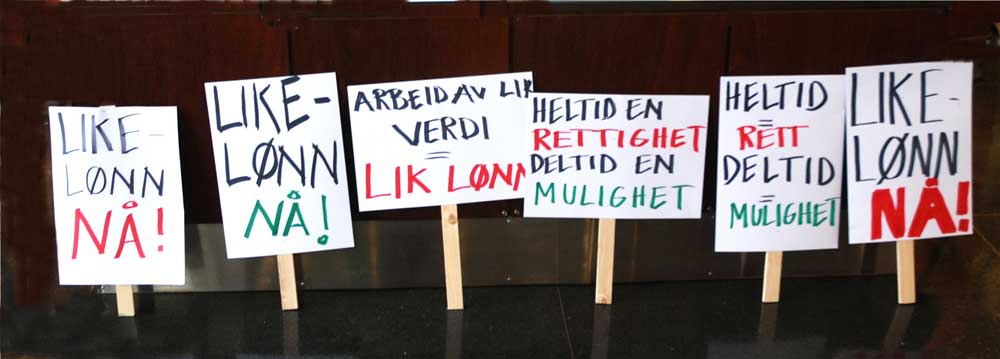 LIKE-
LØNN
NÅ!
LIKE-
LØNN
NÅ!
ARBEID AV LIK
VERDI
=
LIK LØNN
HELTID EN
RETTIGHET
DELTID EN
MULIGHET
HELTID
=
RETT
DELTID
=
MULIGHET
LIKE-
LØNN
NÅ!